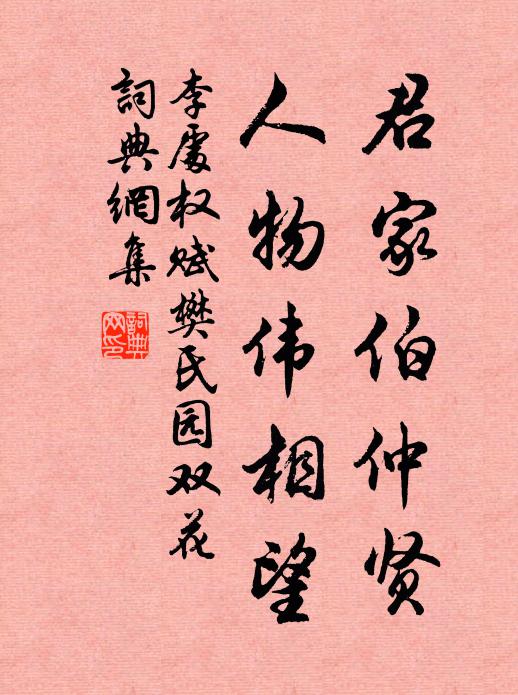 君家伯仲贤
人物伟相望
李處权赋樊氏园双花
詞典網集
詞典网印